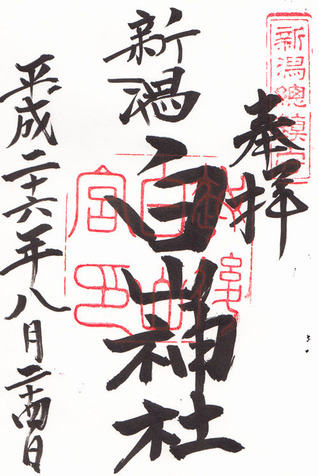 新潟總鎮守
奉拝
新潟白山神社
平成二十六年八月二十四日